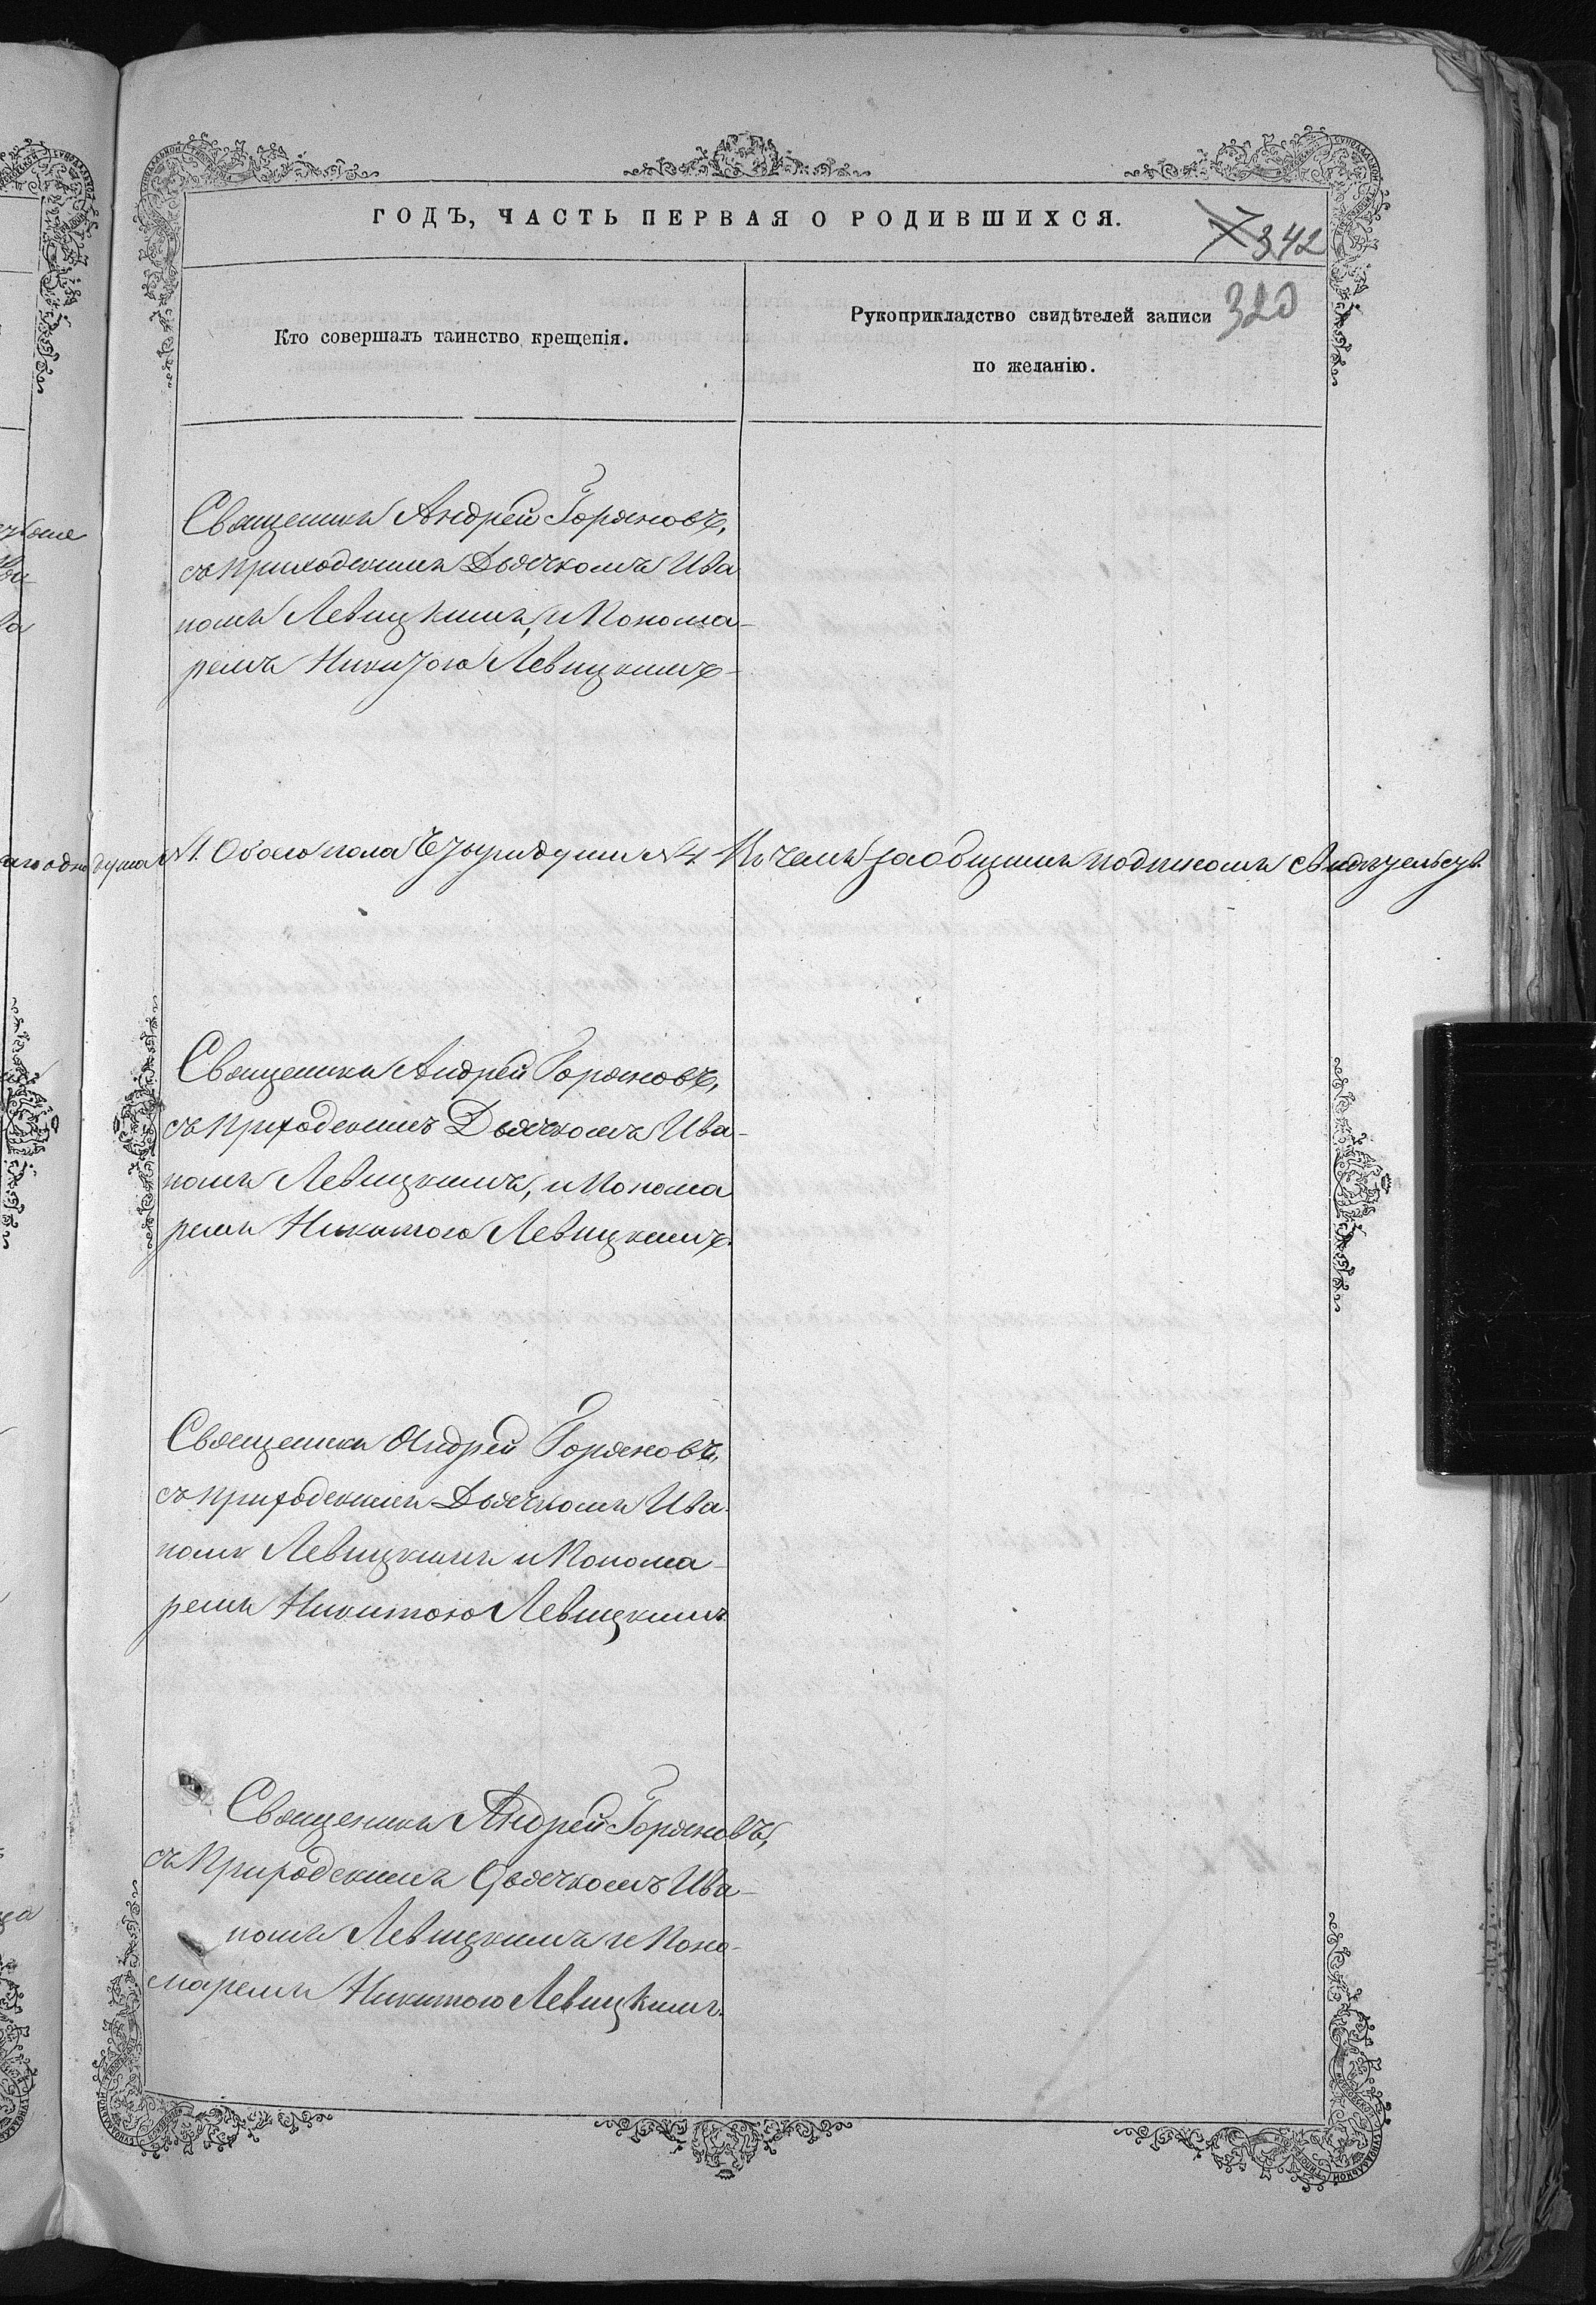 ГОДЪ, ЧАСТЬ ПЕРВАЯ О РОДИВШИХСЯ.
7 342
320
Кто совершалъ таинство крещенія.
Рукоприкладство свидѣтелей записи
по желанію.
Священникъ Андрей Горяновъ,
съ приходскимъ Дьячкомъ Ива
номъ Левицкимъ, и Понома-
ремъ Никитою Левицкимъ
душа №1. Обоего пола Четыри души №4 Въ чемъ заобщимъ подписомъ свидѣтельств
Священникъ Андрей Горяновъ,
съ приходскимъ Дьячкомъ Ива-
номъ Левицкимъ, и Понома
ремъ Никитою Левицкимъ.
Священникъ Андрей Горяновъ,
съ приходскимъ Дьячкомъ Ива-
номъ Левицкимъ и Понома-
ремъ Никитою Левицкимъ
Священникъ Андрей Горяновъ,
съ Приходскимъ Дьячкомъ Ива-
номъ Левицкимъ и Поно-
маремъ Никитою Левицкимъ.